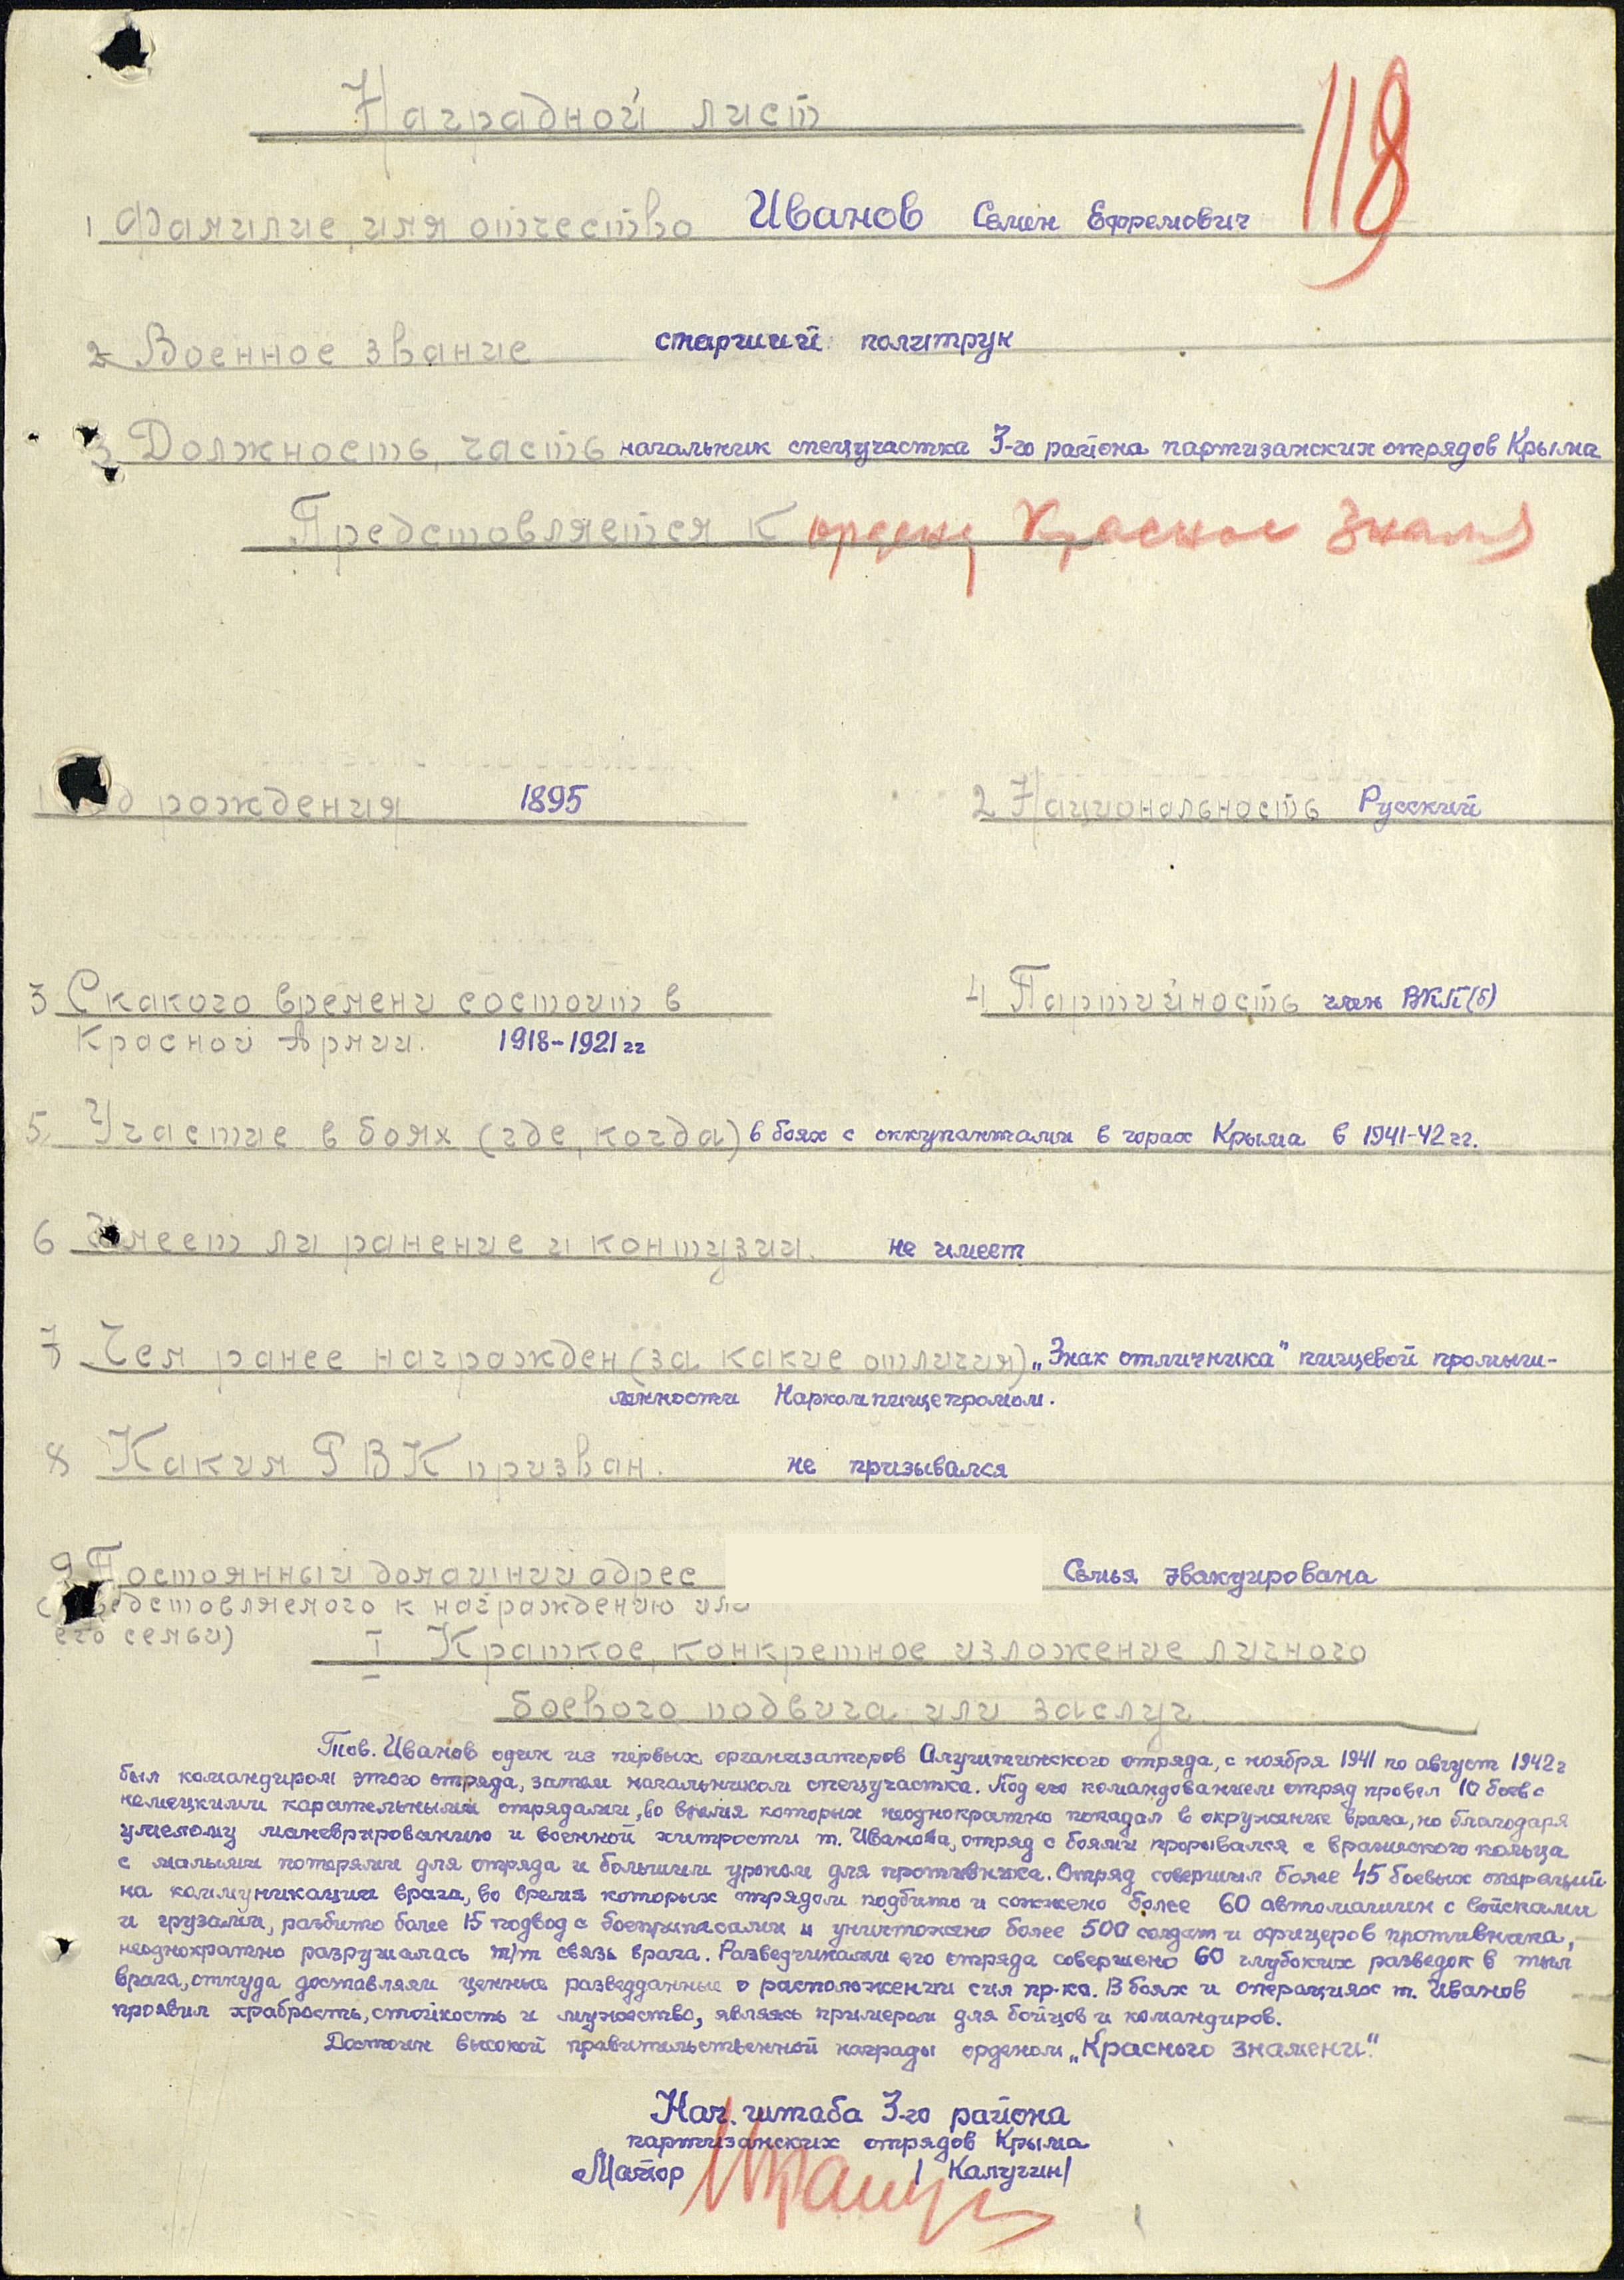 118
Наградной лист
1 Фамилие, имя отчество Иванов Семен Ефремович
2 Военное звание старший политрук
3 Должность, часть начальник спецучастка 3-го района партизанских отрядов Крыма
Представляется к ордену Красное Знамя
рождения 1895
2 Национальность Русский
3 С какого времени состоит в
Красной Армии. 1918-1921 гг
4 Партийность член ВКП(б)
5 Участие в боях (где, когда) в боях с оккупантами в горах Крыма в 1941-42 гг.
6 Имеет ли ранение и контузии. не имеет
7 Чем ранее награжден (за какие отличия) „Знак отличника" пищевой промыш-
ленности Наркомпищепромом.
8 Каким РВК призван. не призывался
9 Постоянный домашний адрес Семья эвакуирована
(представляемого к награждению или
его семьи)
I Краткое, конкретное изложение личного
боевого подвига или заслуг
Тов. Иванов один из первых организаторов Алуштинского отряда, с ноября 1941 по август 1942 г
был командиром этого отряда, затем начальником спецучастка. Под его командованием отряд провел 10 боев с
немецкими карательными отрядами, во время которых неоднократно попадал в окружение врага, но благодаря
умелому маневрированию и военной хитрости т. Иванова, отряд с боями прорывался с вражеского кольца
с малыми потерями для отряда и большим уроном для противника. Отряд совершил более 45 боевых операций
на коммуникации врага, во время которых отрядом подбито и сожжено более 60 автомашин с войсками
и грузами, разбито более 15 подвод с боеприпасами и уничтожено более 500 солдат и офицеров противника,
неоднократно разрушалась т/т связь врага. Разведчиками его отряда совершено 60 глубоких разведок в тыл
врага, откуда доставляли ценные разведданные о расположении сил пр-ка. В боях и операциях т. Иванов
проявил храбрость, стойкость и мужество, являясь примером для бойцов и командиров.
Достоин высокой правительственной награды орденом „Красного знамени".
Нач. штаба 3-го района
партизанских отрядов Крыма
Майор / Калугин/